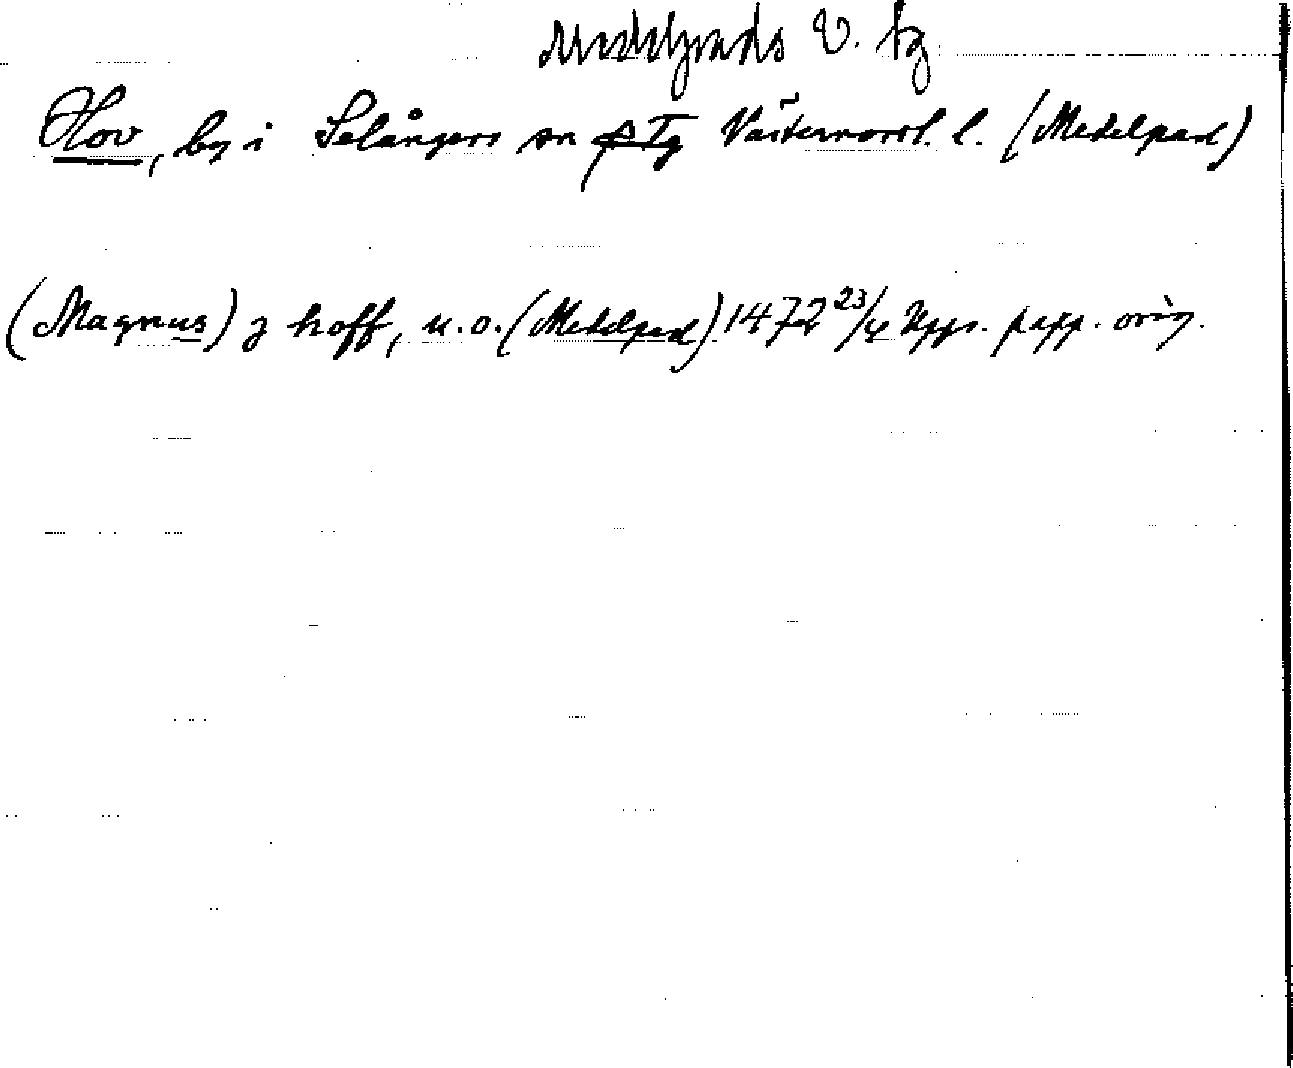 Medelpads V. tg
Hov, by i Selångers sn Tg Västernorrl. l. (Medelpad)
(Magnus) j hoff, u.o. (Medelpad) 1472 23/4 Upps. papp. orig.